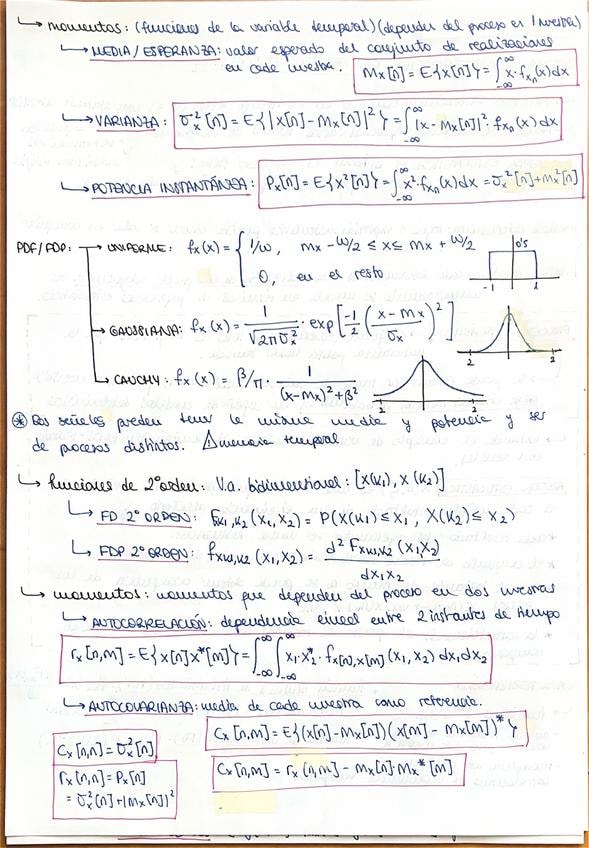 ↳ momentos: (funciones de la variable temporal) (dependen del proceso en 1 muestra)
↳ MEDIA/ESPERANZA: valor esperado del conjunto de realizaciones
en cada muestra. Mx[n] = E{x[n]} = ∫_{-∞}^{∞} x·f_{xn}(x)dx
↳ VARIANZA: σx²[n] = E{|x[n]-Mx[n]|²} = ∫_{-∞}^{∞} |x-Mx[n]|²·f_{xn}(x)dx
↳ POTENCIA INSTANTÁNEA: Px[n] = E{x²[n]} = ∫_{-∞}^{∞} x²·f_{xn}(x)dx = σx²[n]+mx²[n]
PDF/FDP: → UNIFORME: fx(x) = { 1/ω, mx-ω/2 ≤ x ≤ mx+ω/2
0, en el resto
0'5
-1 1
→ GAUSSIANA: fx(x) = 1/√(2πσx²) · exp[-1/2 ((x-Mx)/σx)²]
2 2
→ CAUCHY: fx(x) = β/π · 1/((x-Mx)²+β²)
2 2
⊛ Dos señales pueden tener la misma media y potencia y ser
de procesos distintos. △ memoria temporal
↳ funciones de 2º orden: V.a. bidimensional: [X(K1), X(K2)]
↳ FD 2º ORDEN: F_{K1,K2}(x1,x2) = P(X(K1) ≤ x1, X(K2) ≤ x2)
↳ FDP 2º ORDEN: f_{XK1,K2}(x1,x2) = d²F_{XK1,XK2}(x1x2) / dx1x2
↳ momentos: momentos que dependen del proceso en dos muestras
↳ AUTOCORRELACIÓN: dependencia lineal entre 2 instantes de tiempo
rx[n,m] = E{x[n]x*[m]} = ∫_{-∞}^{∞} ∫_{-∞}^{∞} x1·x2*·f_{x[n],x[m]}(x1,x2)dx1dx2
↳ AUTOCOVARIANZA: media de cada muestra como referencia.
Cx[n,m] = E{(x[n]-Mx[n])(x[m]-Mx[m])*}
Cx[n,n] = σx²[n]
Cx[n,m] = rx(n,m]-mx[n]·mx*[m]
rx[n,n] = Px[n]
= σx²[n]+|mx[n]|²